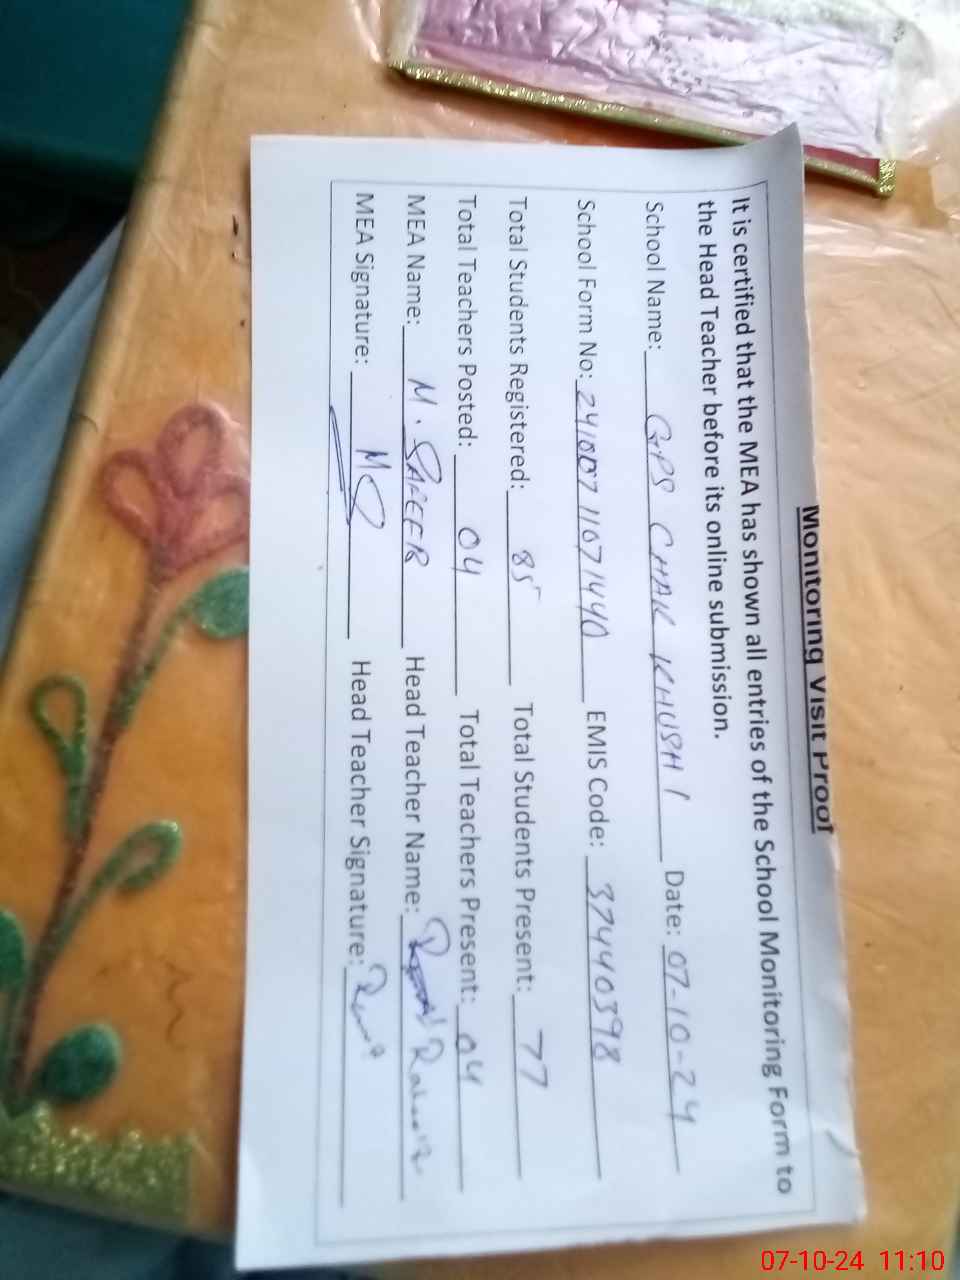 Monitoring Visit Proof
It is certified that the MEA has shown all entries of the School Monitoring Form to
the Head Teacher before its online submission.
School Name: GPS CHAK KHUSHI Date: 07-10-24
School Form No: 241007 1107 1440 EMIS Code: 37440398
Total Students Registered: 85 Total Students Present: 77
Total Teachers Posted: 04 Total Teachers Present: 04
MEA Name: M. SAFEER Head Teacher Name:
MEA Signature: MS Head Teacher Signature:
07-10-24 11:10